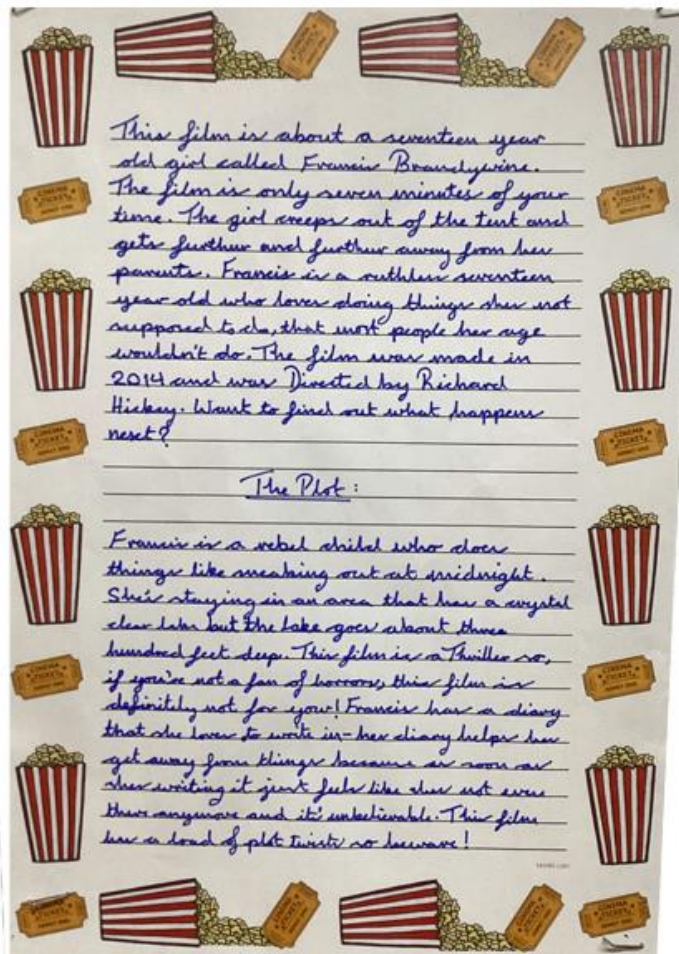 This film is about a seventeen year
old girl called Francis Brandywine.
The film is only seven minutes of your
time. The girl creeps out of the tent and
gets further and further away from her
parents. Francis is a ruthless seventeen
year old who loves doing things shes not
supposed to do, that most people her age
wouldn't do. The film was made in
2014 and was Directed by Richard
Hickey. Want to find out what happens
next?
The Plot:
Francis is a rebel child who does
things like sneaking out at midnight.
She's staying in an area that has a crystal
clear lake but the lake goes about three
hundred feet deep. This film is a Thriller so,
if you're not a fan of horrors, this film is
definitely not for your! Francis has a diary
that she loves to write in-her diary helps her
get away from things because as soon as
shes writing it just feels like shes not even
there anymore and it's unbelievable. This film
has a load of plot twists so beware!
CINEMA
TICKET
ADMIT ONE